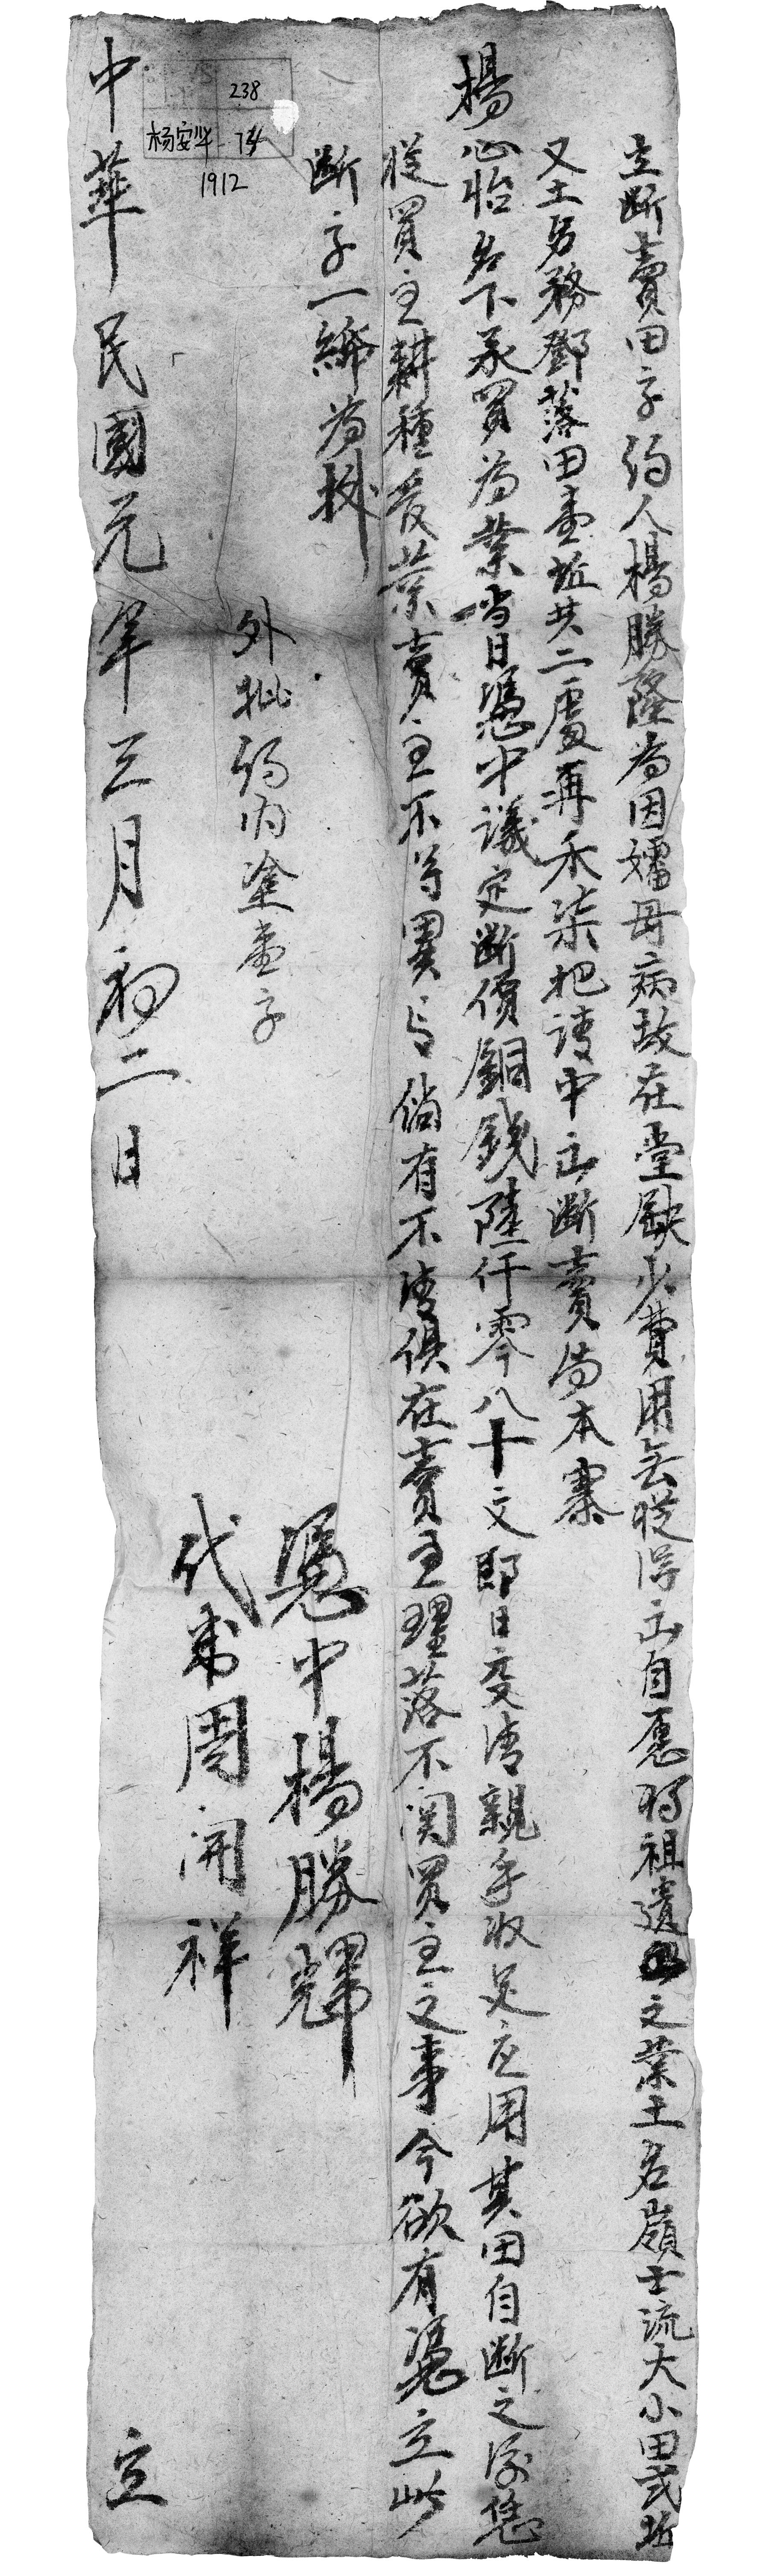 立斷賣田字約人楊勝隆為因嬬母病故在堂缺少費用無從得出自愿將祖遺之業土名嶺士流大小田弍坵
又土名務鄧落田壹坵共二處再禾柒把請中出斷賣與本寨
楊心怡名下承買為業當日憑中議定斷價銅錢陸仟零八十文即日交清親手收足应用其田自斷之後恁
從買主耕種管業賣主不得異言倘有不清俱在賣主理落不関買主之事今欲有憑立此
斷字一紙為據
外批約內塗壹字
憑中楊勝輝
代書周開祥
中華民國元年三月初二日 立
238
杨安华
1912